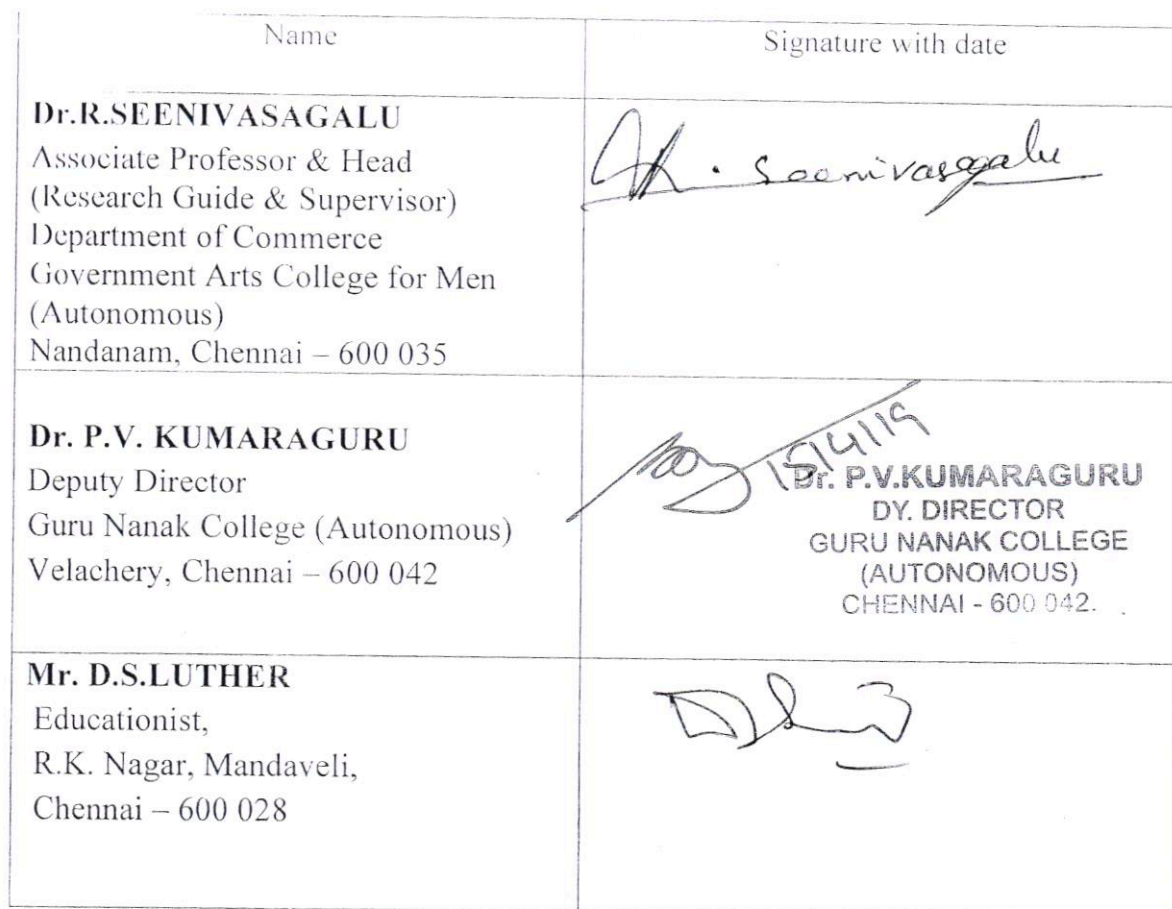 Name
Signature with date
Dr.R.SEENIVASAGALU
Associate Professor & Head
(Research Guide & Supervisor)
Department of Commerce
Government Arts College for Men
(Autonomous)
Nandanam, Chennai – 600 035
. Seenivasagalu
Dr. P.V. KUMARAGURU
Deputy Director
Guru Nanak College (Autonomous)
Velachery, Chennai – 600 042
15/4/19
Dr. P.V.KUMARAGURU
DY. DIRECTOR
GURU NANAK COLLEGE
(AUTONOMOUS)
CHENNAI - 600 042.
Mr. D.S.LUTHER
Educationist,
R.K. Nagar, Mandaveli,
Chennai – 600 028